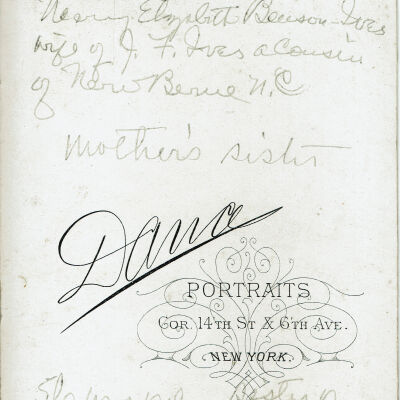 Mary Elizabeth Benson-Ives
wife of J. F. Ives a cousin
of New Berne N.C
Mother's sister
Dana
PORTRAITS
COR. 14TH ST & 6TH AVE.
NEW YORK.